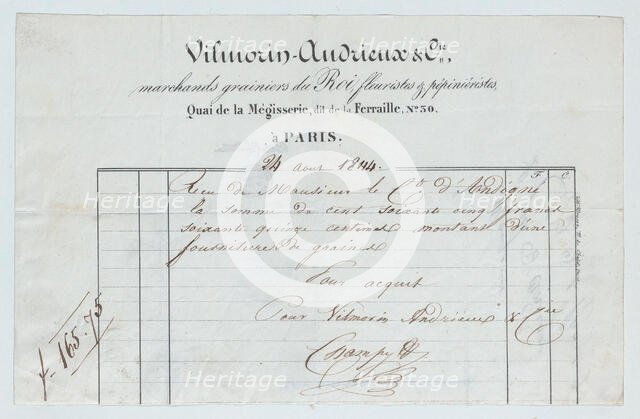 Vilmorin-Andrieux & Cie,
marchands grainiers du Roi, fleuristes & pépiniéristes,
Quai de la Mégisserie, dit de la Ferraille, No 30,
à PARIS.
24 Aout 1844.
F. C.
Reçu de Monsieur le Cte d'Andigné
la somme de cent soixante cinq francs
soixante quinze centimes montant d'une
fourniture de graines
Pour acquit
Pour Vilmorin Andrieux & Cie
Champy
f. 165.75
Heritage
Heritage
Heritage
Heritage
Heritage
Heritage